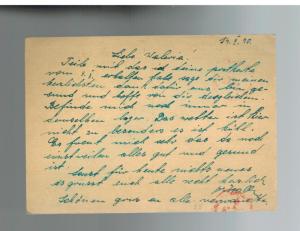 14.I.40.
Liebe Valeria!
Teile mit das ich deine postkarte
vom erhalten habe sage dir meinen
herzlichsten dank bin ges-
und und hoffe von dir desgleichen.
Befinde mich noch immer in
demselben lager. Das wetter ist hier
nicht zu besonders es ist kühl.
Es freut mich sehr das du noch
einstweilen alles gut und gesund
ist. Sonst für heute nichts neues
es grüsst euch alle recht herzlich
Schönen gruss an alle verwandte